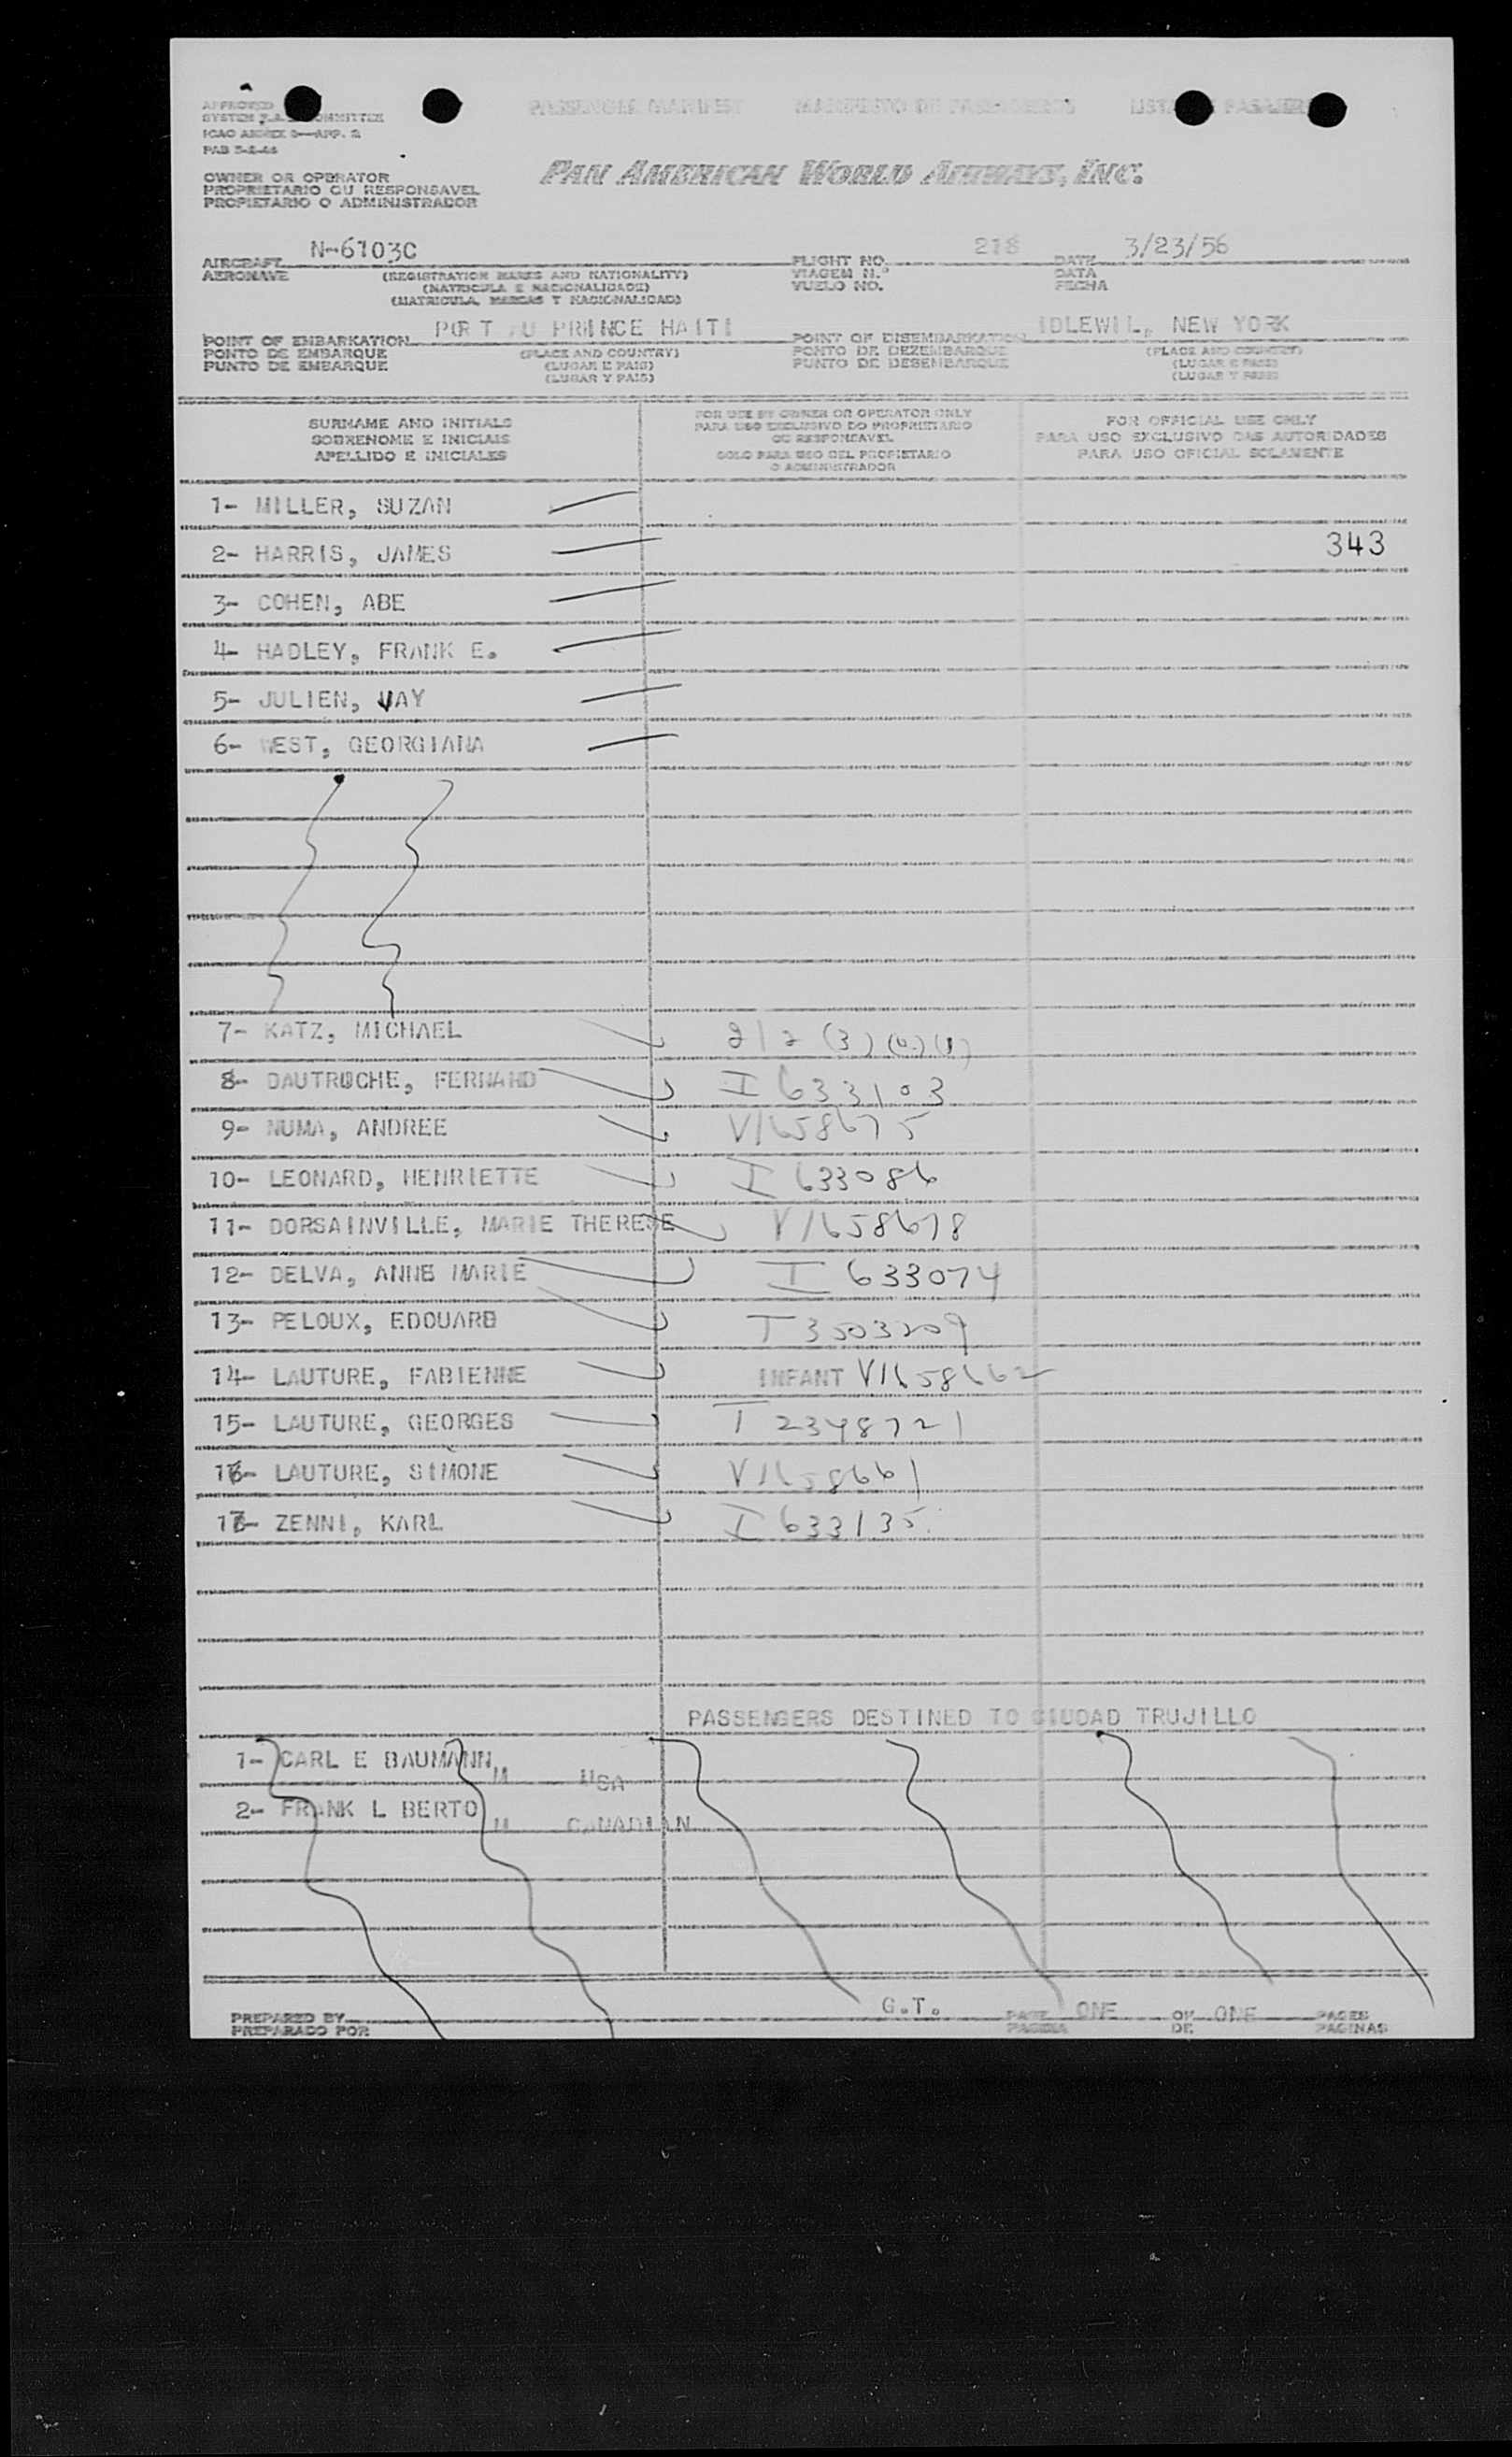 APPROVED
SYSTEM F.A.L. COMMITTEE
ICAO ANNEX 9—APP. 2
PASSENGER MANIFEST MANIFESTO DE PASSAGEIROS LISTA PASAJEROS
OWNER OR OPERATOR
PROPRIETARIO OU RESPONSAVEL
PROPIETARIO O ADMINISTRADOR
PAN AMERICAN WORLD AIRWAYS, INC.
AIRCRAFT N-6103C FLIGHT NO. 218 DATE 3/23/56
AERONAVE (REGISTRATION MARKS AND NATIONALITY) VIAGEM N.º DATA
(MATRICULA E NACIONALIDADE) VUELO NO. FECHA
(MATRICULA, MARCAS Y NACIONALIDAD)
POINT OF EMBARKATION PORT AU PRINCE HAITI POINT OF DISEMBARKATION IDLEWIL, NEW YORK
PONTO DE EMBARQUE (PLACE AND COUNTRY) PONTO DE DEZEMBARQUE (PLACE AND COUNTRY)
PUNTO DE EMBARQUE (LUGAR E PAIS) PUNTO DE DESEMBARQUE (LUGAR E PAIS)
(LUGAR Y PAIS) (LUGAR Y PAIS)
SURNAME AND INITIALS FOR USE BY OWNER OR OPERATOR ONLY FOR OFFICIAL USE ONLY
SOBRENOME E INICIAIS PARA USO EXCLUSIVO DO PROPRIETARIO PARA USO EXCLUSIVO DAS AUTORIDADES
OU RESPONSAVEL
APELLIDO E INICIALES SOLO PARA USO DEL PROPIETARIO PARA USO OFICIAL SOLAMENTE
O ADMINISTRADOR
1- MILLER, SUZAN
2- HARRIS, JAMES 343
3- COHEN, ABE
4- HADLEY, FRANK E.
5- JULIEN, VAY
6- WEST, GEORGIANA
7- KATZ, MICHAEL 212 (3) (4) (1)
8- DAUTRUCHE, FERNAND I 633103
9- NUMA, ANDREE V1658675
10- LEONARD, HENRIETTE I 633086
11- DORSAINVILLE, MARIE THERESE V1658678
12- DELVA, ANNE MARIE I 633074
13- PELOUX, EDOUARD T 3503209
14- LAUTURE, FABIENNE INFANT V1658662
15- LAUTURE, GEORGES I 2348721
16- LAUTURE, SIMONE V1658661
17- ZENNI, KARL I 633135
PASSENGERS DESTINED TO CIUDAD TRUJILLO
1- CARL E BAUMANN M USA
2- FRANK L BERTO M CANADIAN
PREPARED BY G.T. PAGE ONE OF ONE PAGES
PREPARADO POR PAGINA DE PAGINAS